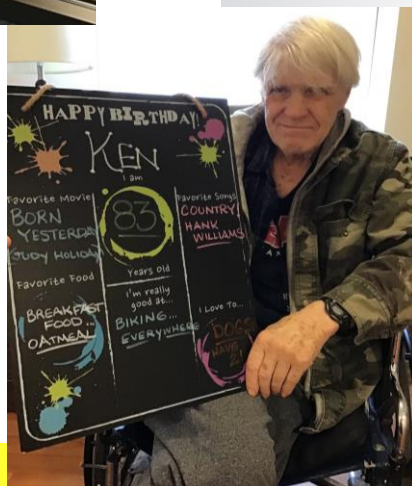 HAPPY BIRTHDAY!
KEN
I am
83
Years old
Favorite Movie
BORN
YESTERDAY
JUDY HOLIDAY
Favorite Food
BREAKFAST
FOOD...
OATMEAL
I'm really
good at...
BIKING...
EVERYWHERE
Favorite Songs
COUNTRY
HANK
WILLIAMS
I Love To...
DOGS
HAVE
2!